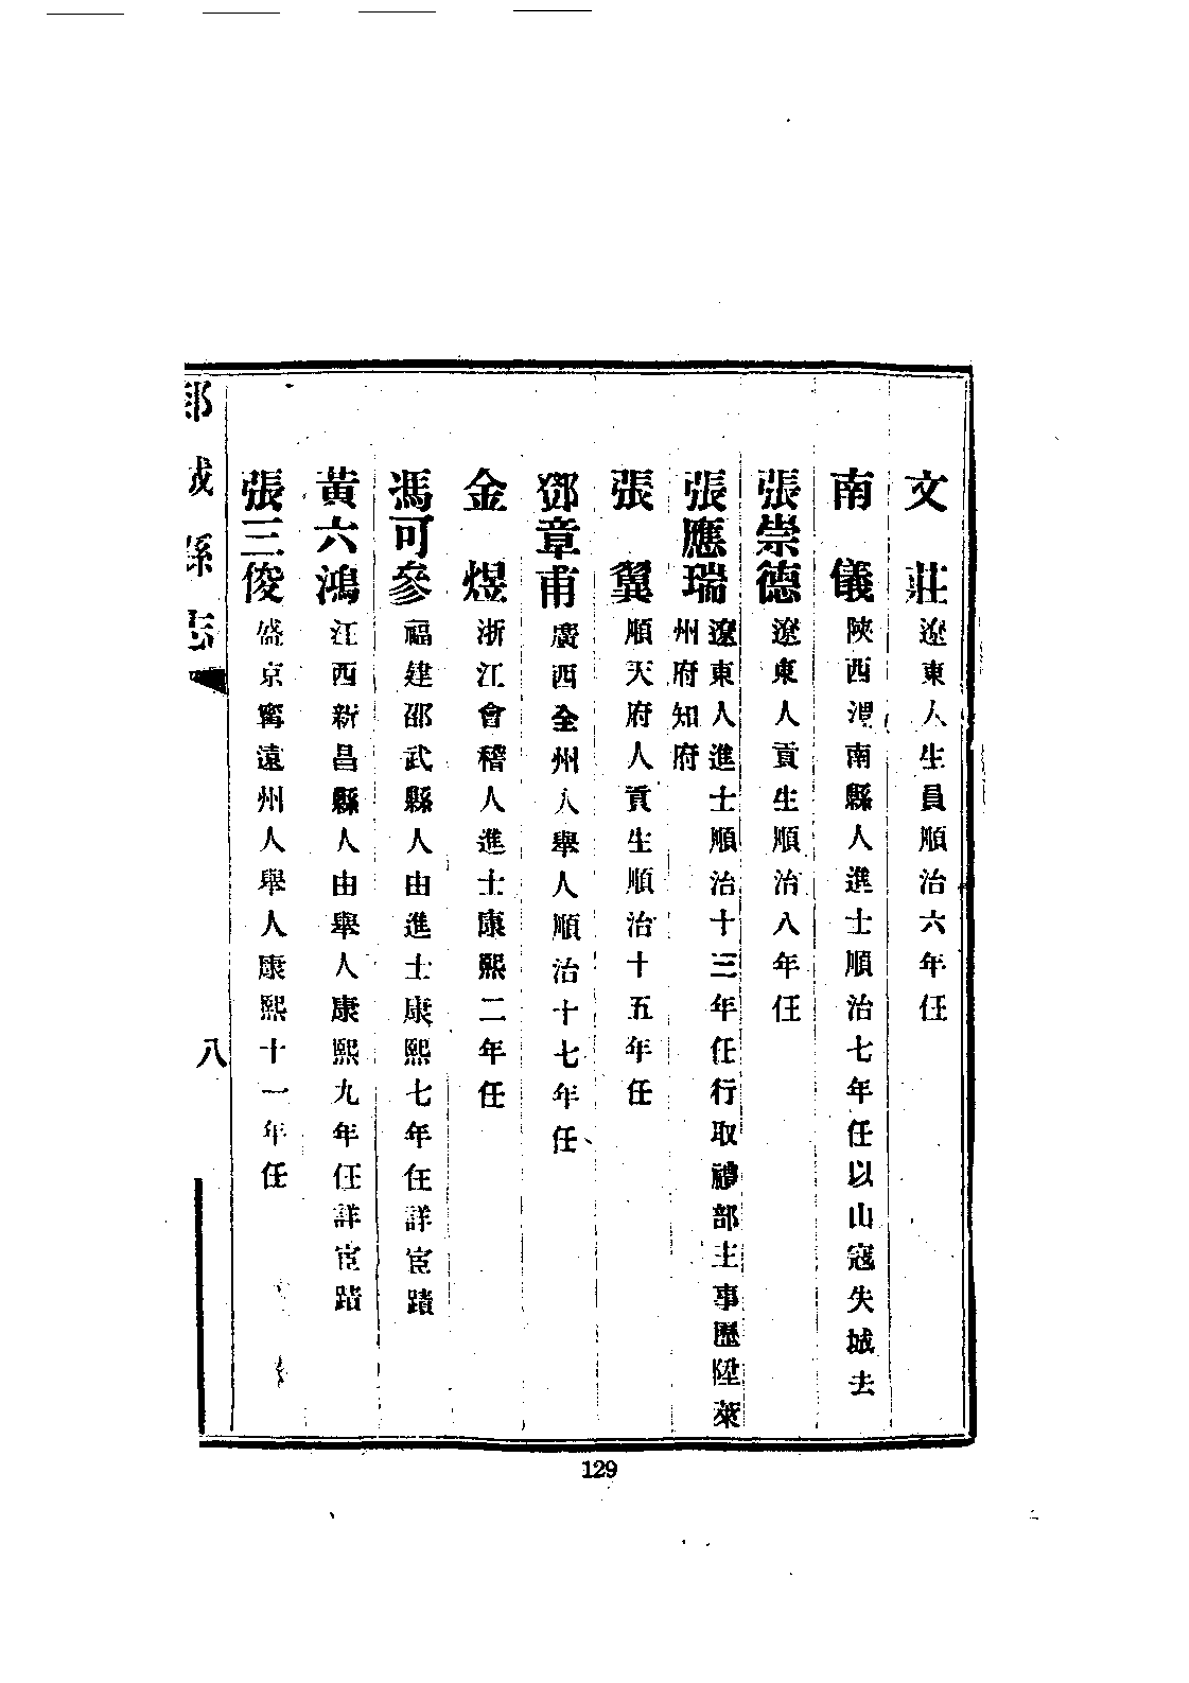 文　莊遼東人生員順治六年任
南　儀陝西渭南縣人進士順治七年任以山寇失城去
張崇德遼東人貢生順治八年任
張應瑞遼東人進士順治十三年任行取禮部主事歷陞萊
州府知府
張　翼順天府人貢生順治十五年任
鄧章甫廣西全州人舉人順治十七年任
金　煜浙江會稽人進士康熙二年任
馮可參福建邵武縣人由進士康熙七年任詳宦蹟
黃六鴻江西新昌縣人由舉人康熙九年任詳宦蹟
張三俊盛京寧遠州人舉人康熙十一年任
郯城縣志
八
129